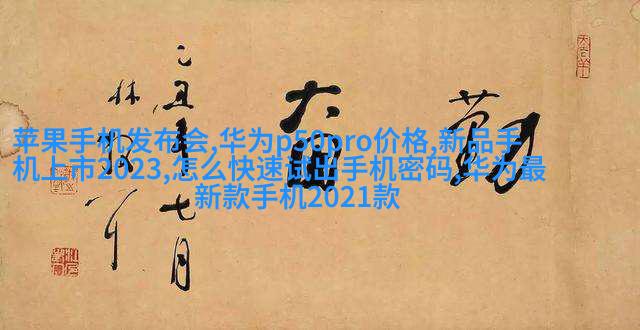 苹果手机发布会,华为p50pro价格,新品手
机上市2023,怎么快速试出手机密码,华为最
新款手机2021款
勤奋
乙丑年七月
林